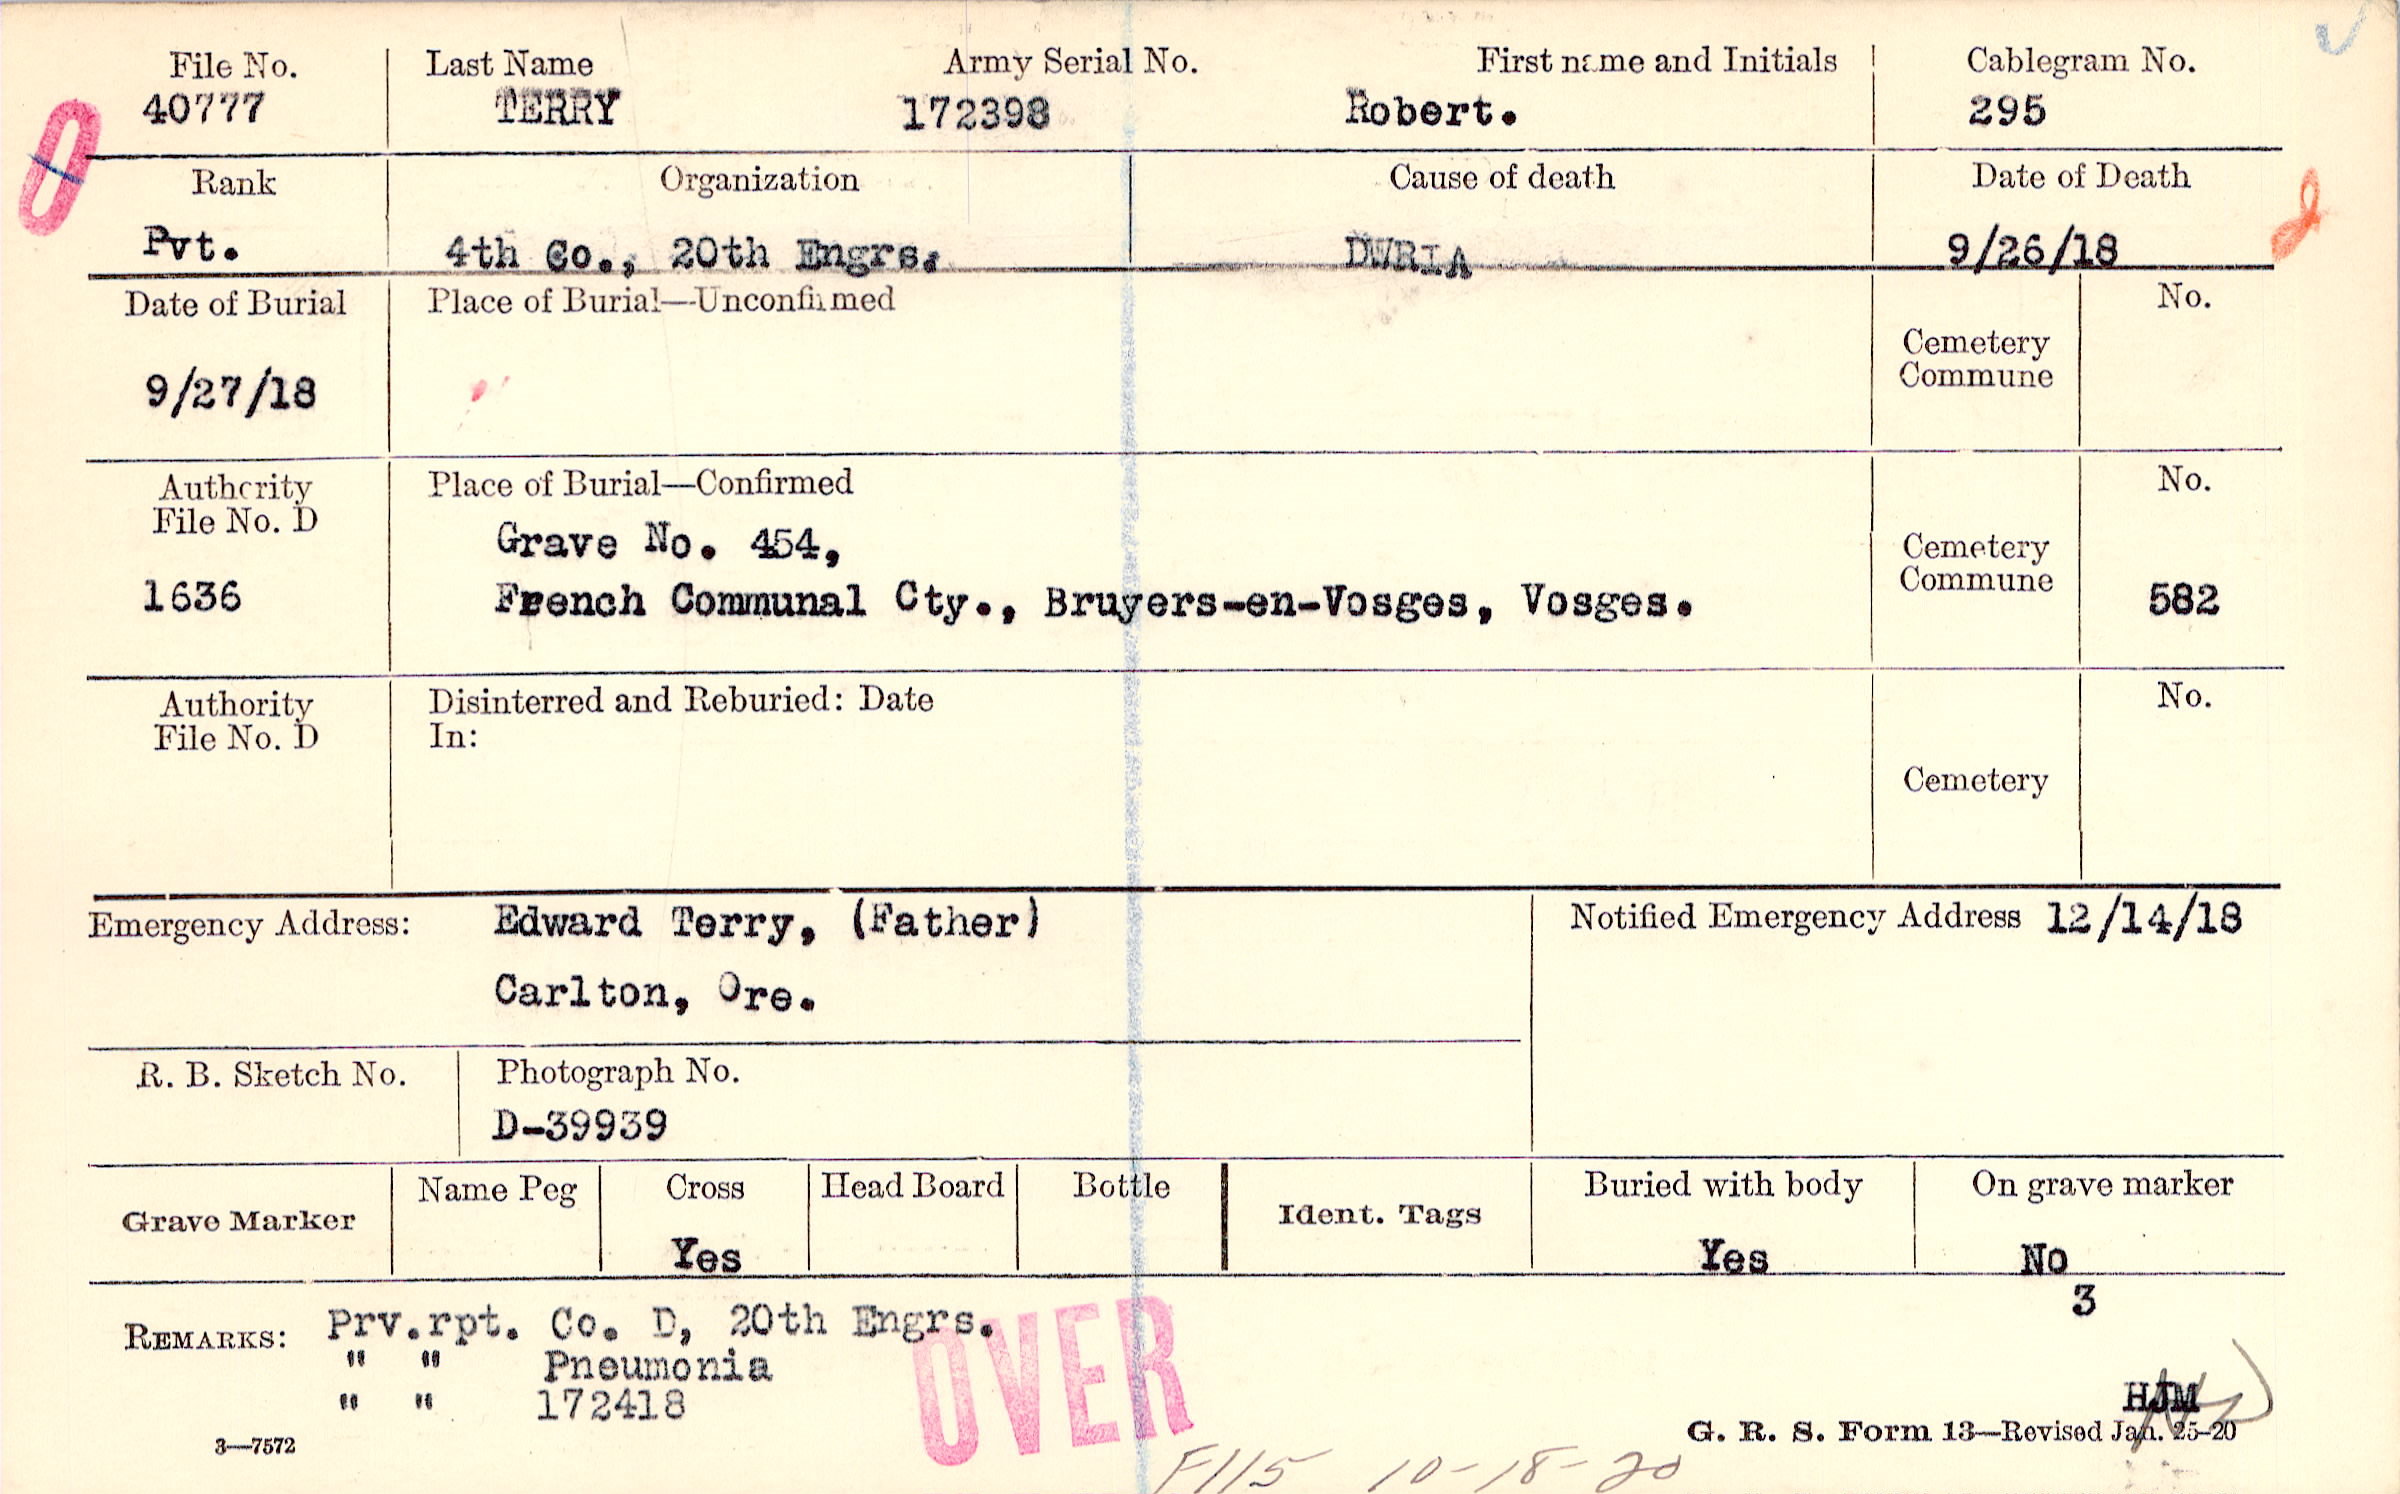 File No. Last Name Army Serial No. First name and Initials Cablegram No.
40777 TERRY 172398 Robert. 295
Rank Organization Cause of death Date of Death
Pvt. 4th Co., 20th Engrs. DWRIA 9/26/18
Date of Burial Place of Burial—Unconfirmed No.
Cemetery
Commune
9/27/18
Authority Place of Burial—Confirmed No.
File No. D
Grave No. 454,
Cemetery
Commune
1636 French Communal Cty., Bruyers-en-Vosges, Vosges. 582
Authority Disinterred and Reburied: Date No.
File No. D In:
Cemetery
Emergency Address: Edward Terry, (Father) Notified Emergency Address 12/14/18
Carlton, Ore.
R. B. Sketch No. Photograph No.
D-39939
Grave Marker Name Peg Cross Head Board Bottle Ident. Tags Buried with body On grave marker
Yes Yes No
3
REMARKS: Prv.rpt. Co. D, 20th Engrs.
" " Pneumonia
" " 172418
OVER
HJM
3—7572 G. R. S. Form 13—Revised Jan. 25-20
F115 10-18-20